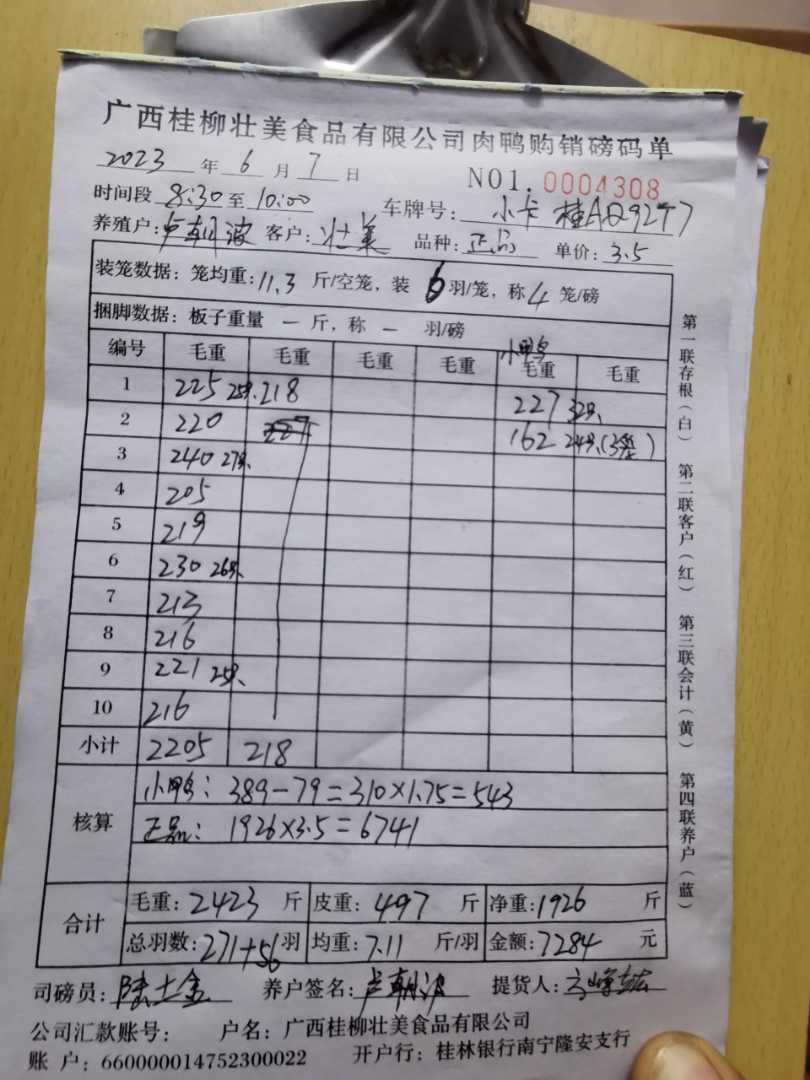 广西桂柳壮美食品有限公司肉鸭购销磅码单
2023 年 6 月 7 日 NO1. 0004308
时间段 8:30 至 10:00 车牌号: 小卡 桂AQ9277
养殖户: 卢朝波 客户: 壮美 品种: 正品 单价: 3.5
装笼数据: 笼均重: 11.3 斤/空笼, 装 6 羽/笼, 称 4 笼/磅
捆脚数据: 板子重量 — 斤, 称 — 羽/磅
小鸭
编号 毛重 毛重 毛重 毛重 毛重 毛重
1 225 25只 218 227 32只
2 220 227 162 24只(3笼)
3 240 27只
4 205
5 219
6 230 26只
7 213
8 216
9 221 25只
10 216
小计 2205 218
核算
小鸭: 389-79=310×1.75=543
正品: 1926×3.5=6741
合计
毛重: 2423 斤 皮重: 497 斤 净重: 1926 斤
总羽数: 271+56 羽 均重: 7.11 斤/羽 金额: 7284 元
司磅员: 陆士金 养户签名: 卢朝波 提货人:
公司汇款账号: 户名: 广西桂柳壮美食品有限公司
账 户: 660000014752300022 开户行: 桂林银行南宁隆安支行
第一联存根(白) 第二联客户(红) 第三联会计(黄) 第四联养户(蓝)